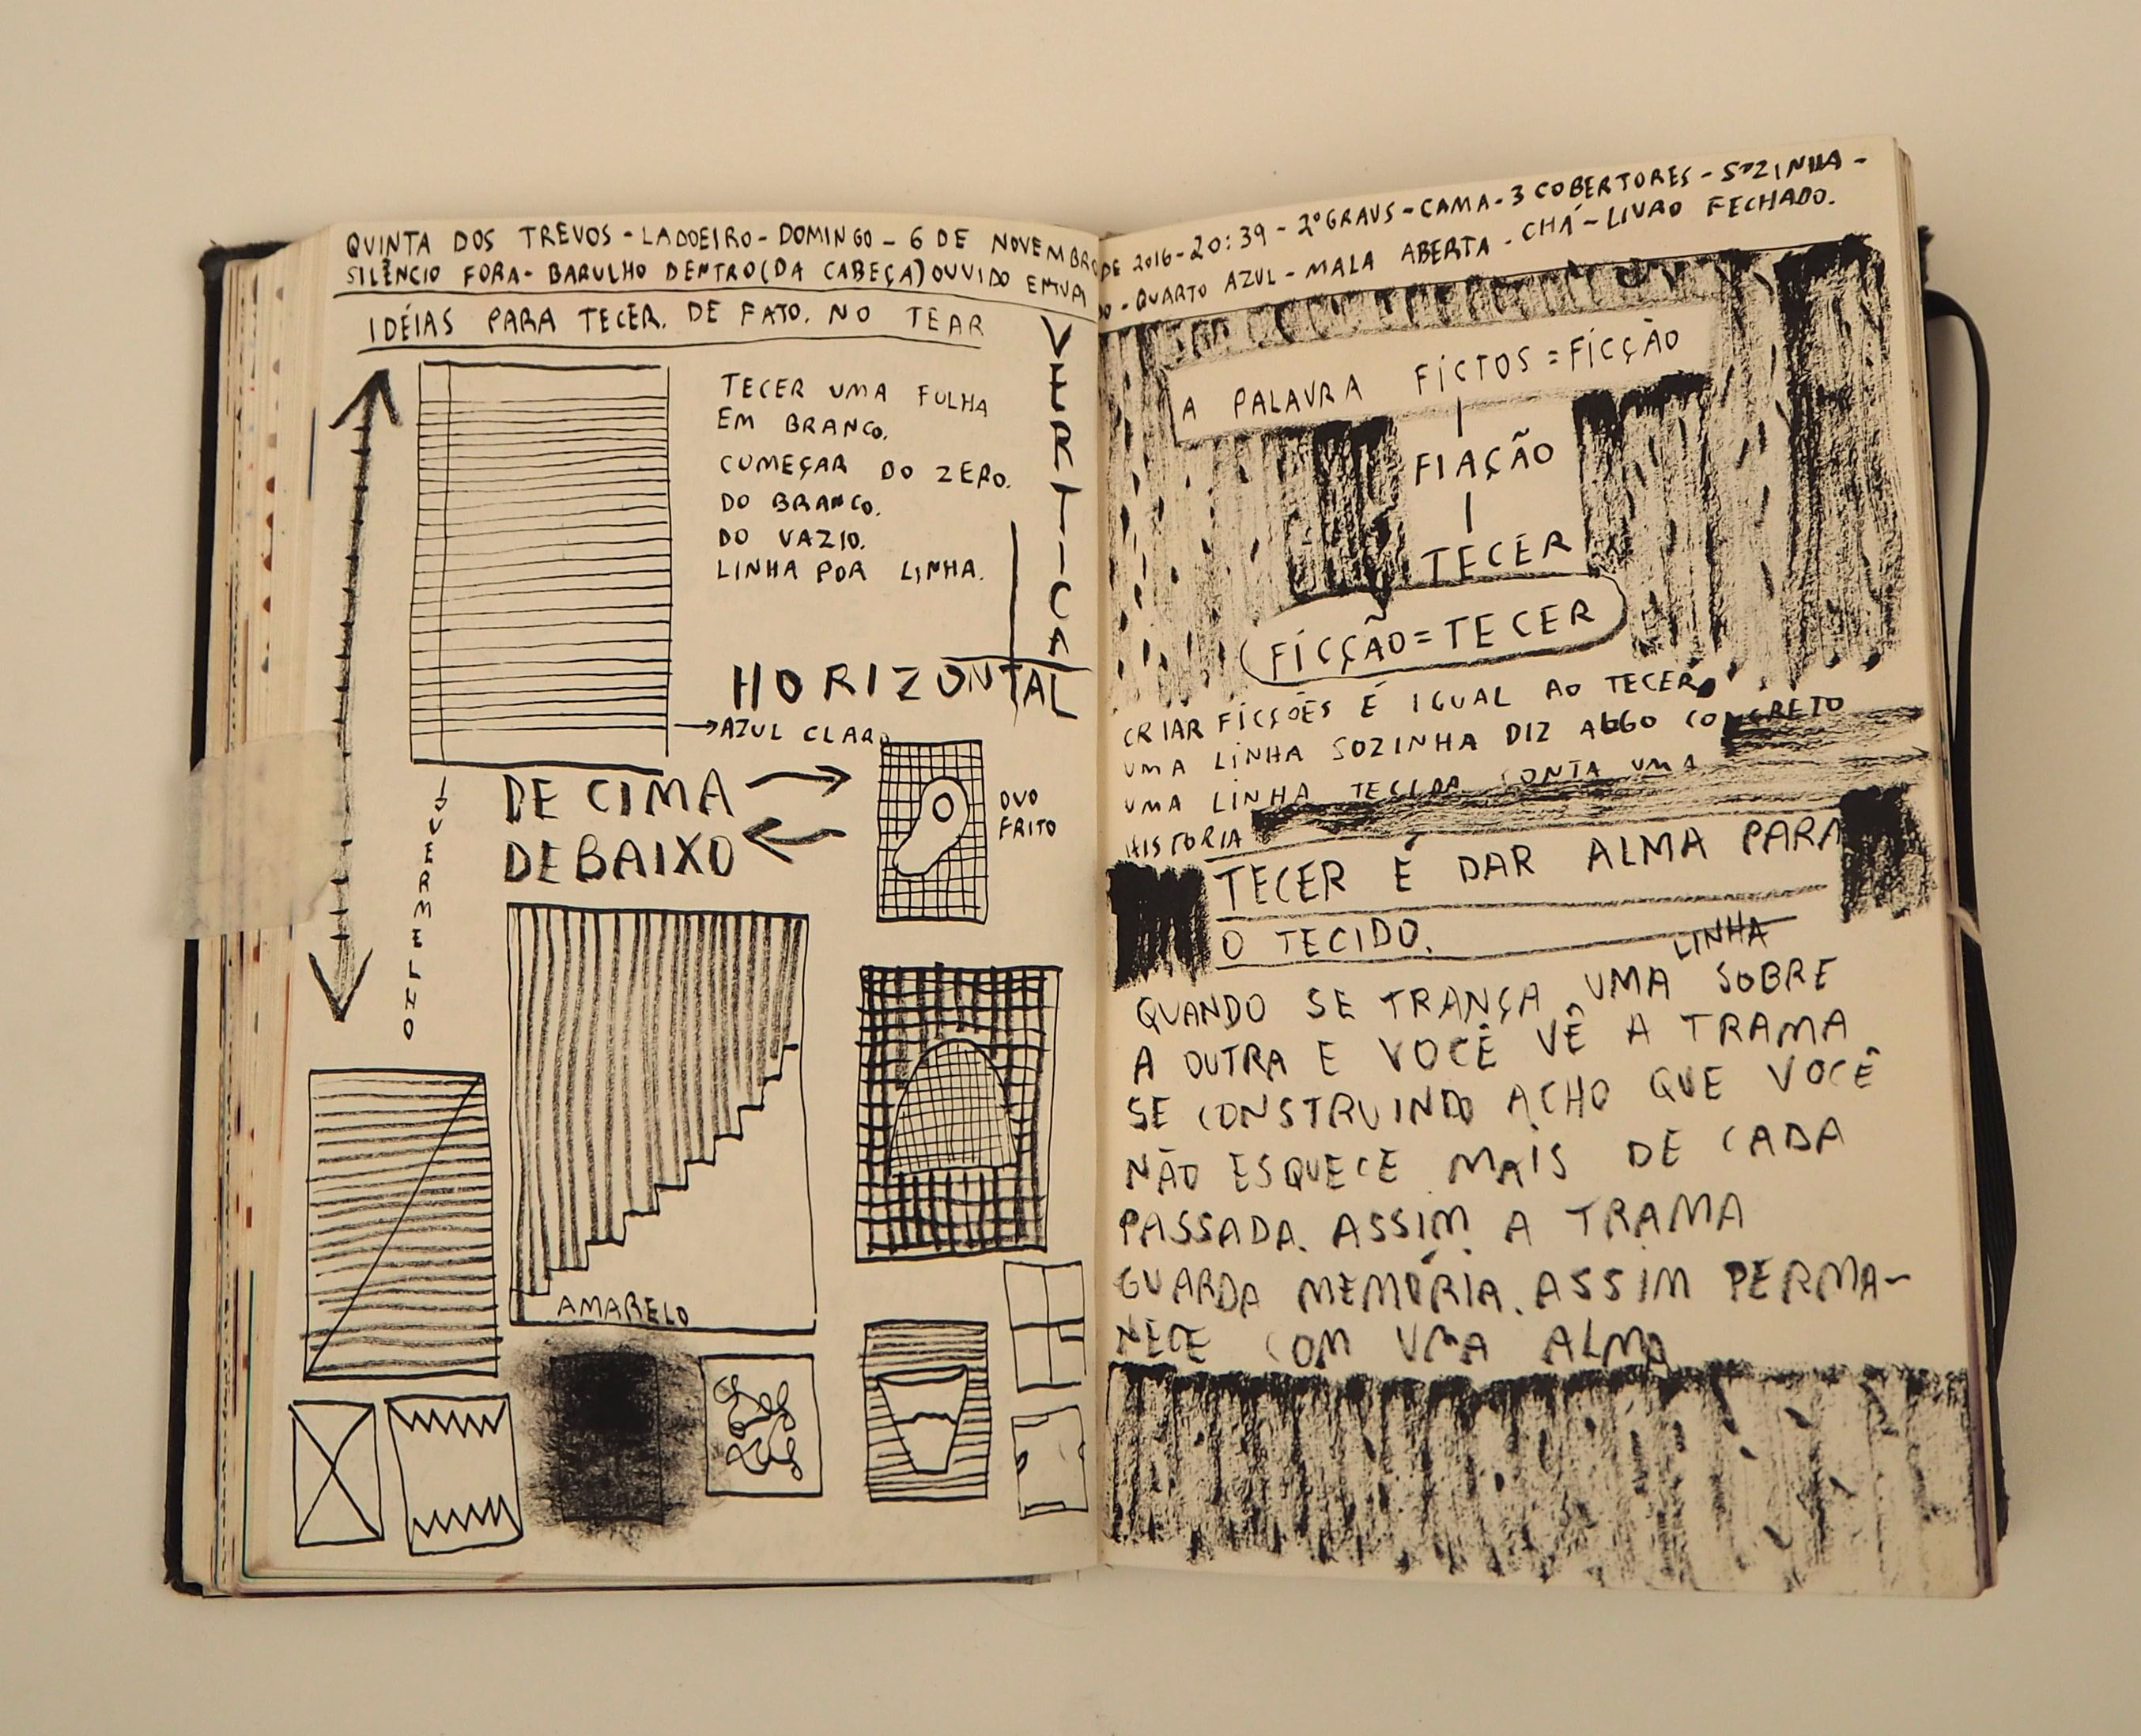 QUINTA DOS TREVOS - LADOEIRO - DOMINGO - 6 DE NOVEMBRO DE 2016 - 20:39 - 2º GRAUS - CAMA - 3 COBERTORES - SOZINHA -
SILÊNCIO FORA - BARULHO DENTRO (DA CABEÇA) OUVIDO ENTUPIDO - QUARTO AZUL - MALA ABERTA - CHÁ - LIVRO FECHADO.
IDÉIAS PARA TECER. DE FATO. NO TEAR
TECER UMA FOLHA
EM BRANCO.
COMEÇAR DO ZERO.
DO BRANCO.
DO VAZIO.
LINHA POR LINHA.
VERTICAL
HORIZONTAL
AZUL CLARO
VERMELHO
DE CIMA
DEBAIXO
OVO
FRITO
AMARELO
A PALAVRA FICTOS = FICÇÃO
FIAÇÃO
TECER
FICÇÃO = TECER
CRIAR FICÇÕES É IGUAL AO TECER
UMA LINHA SOZINHA DIZ ALGO CONCRETO
UMA LINHA TECIDA CONTA UMA
HISTORIA
TECER É DAR ALMA PARA
O TECIDO.
LINHA
QUANDO SE TRANÇA UMA SOBRE
A OUTRA E VOCÊ VÊ A TRAMA
SE CONSTRUINDO ACHO QUE VOCÊ
NÃO ESQUECE MAIS DE CADA
PASSADA. ASSIM A TRAMA
GUARDA MEMÓRIA. ASSIM PERMA-
NECE COM UMA ALMA